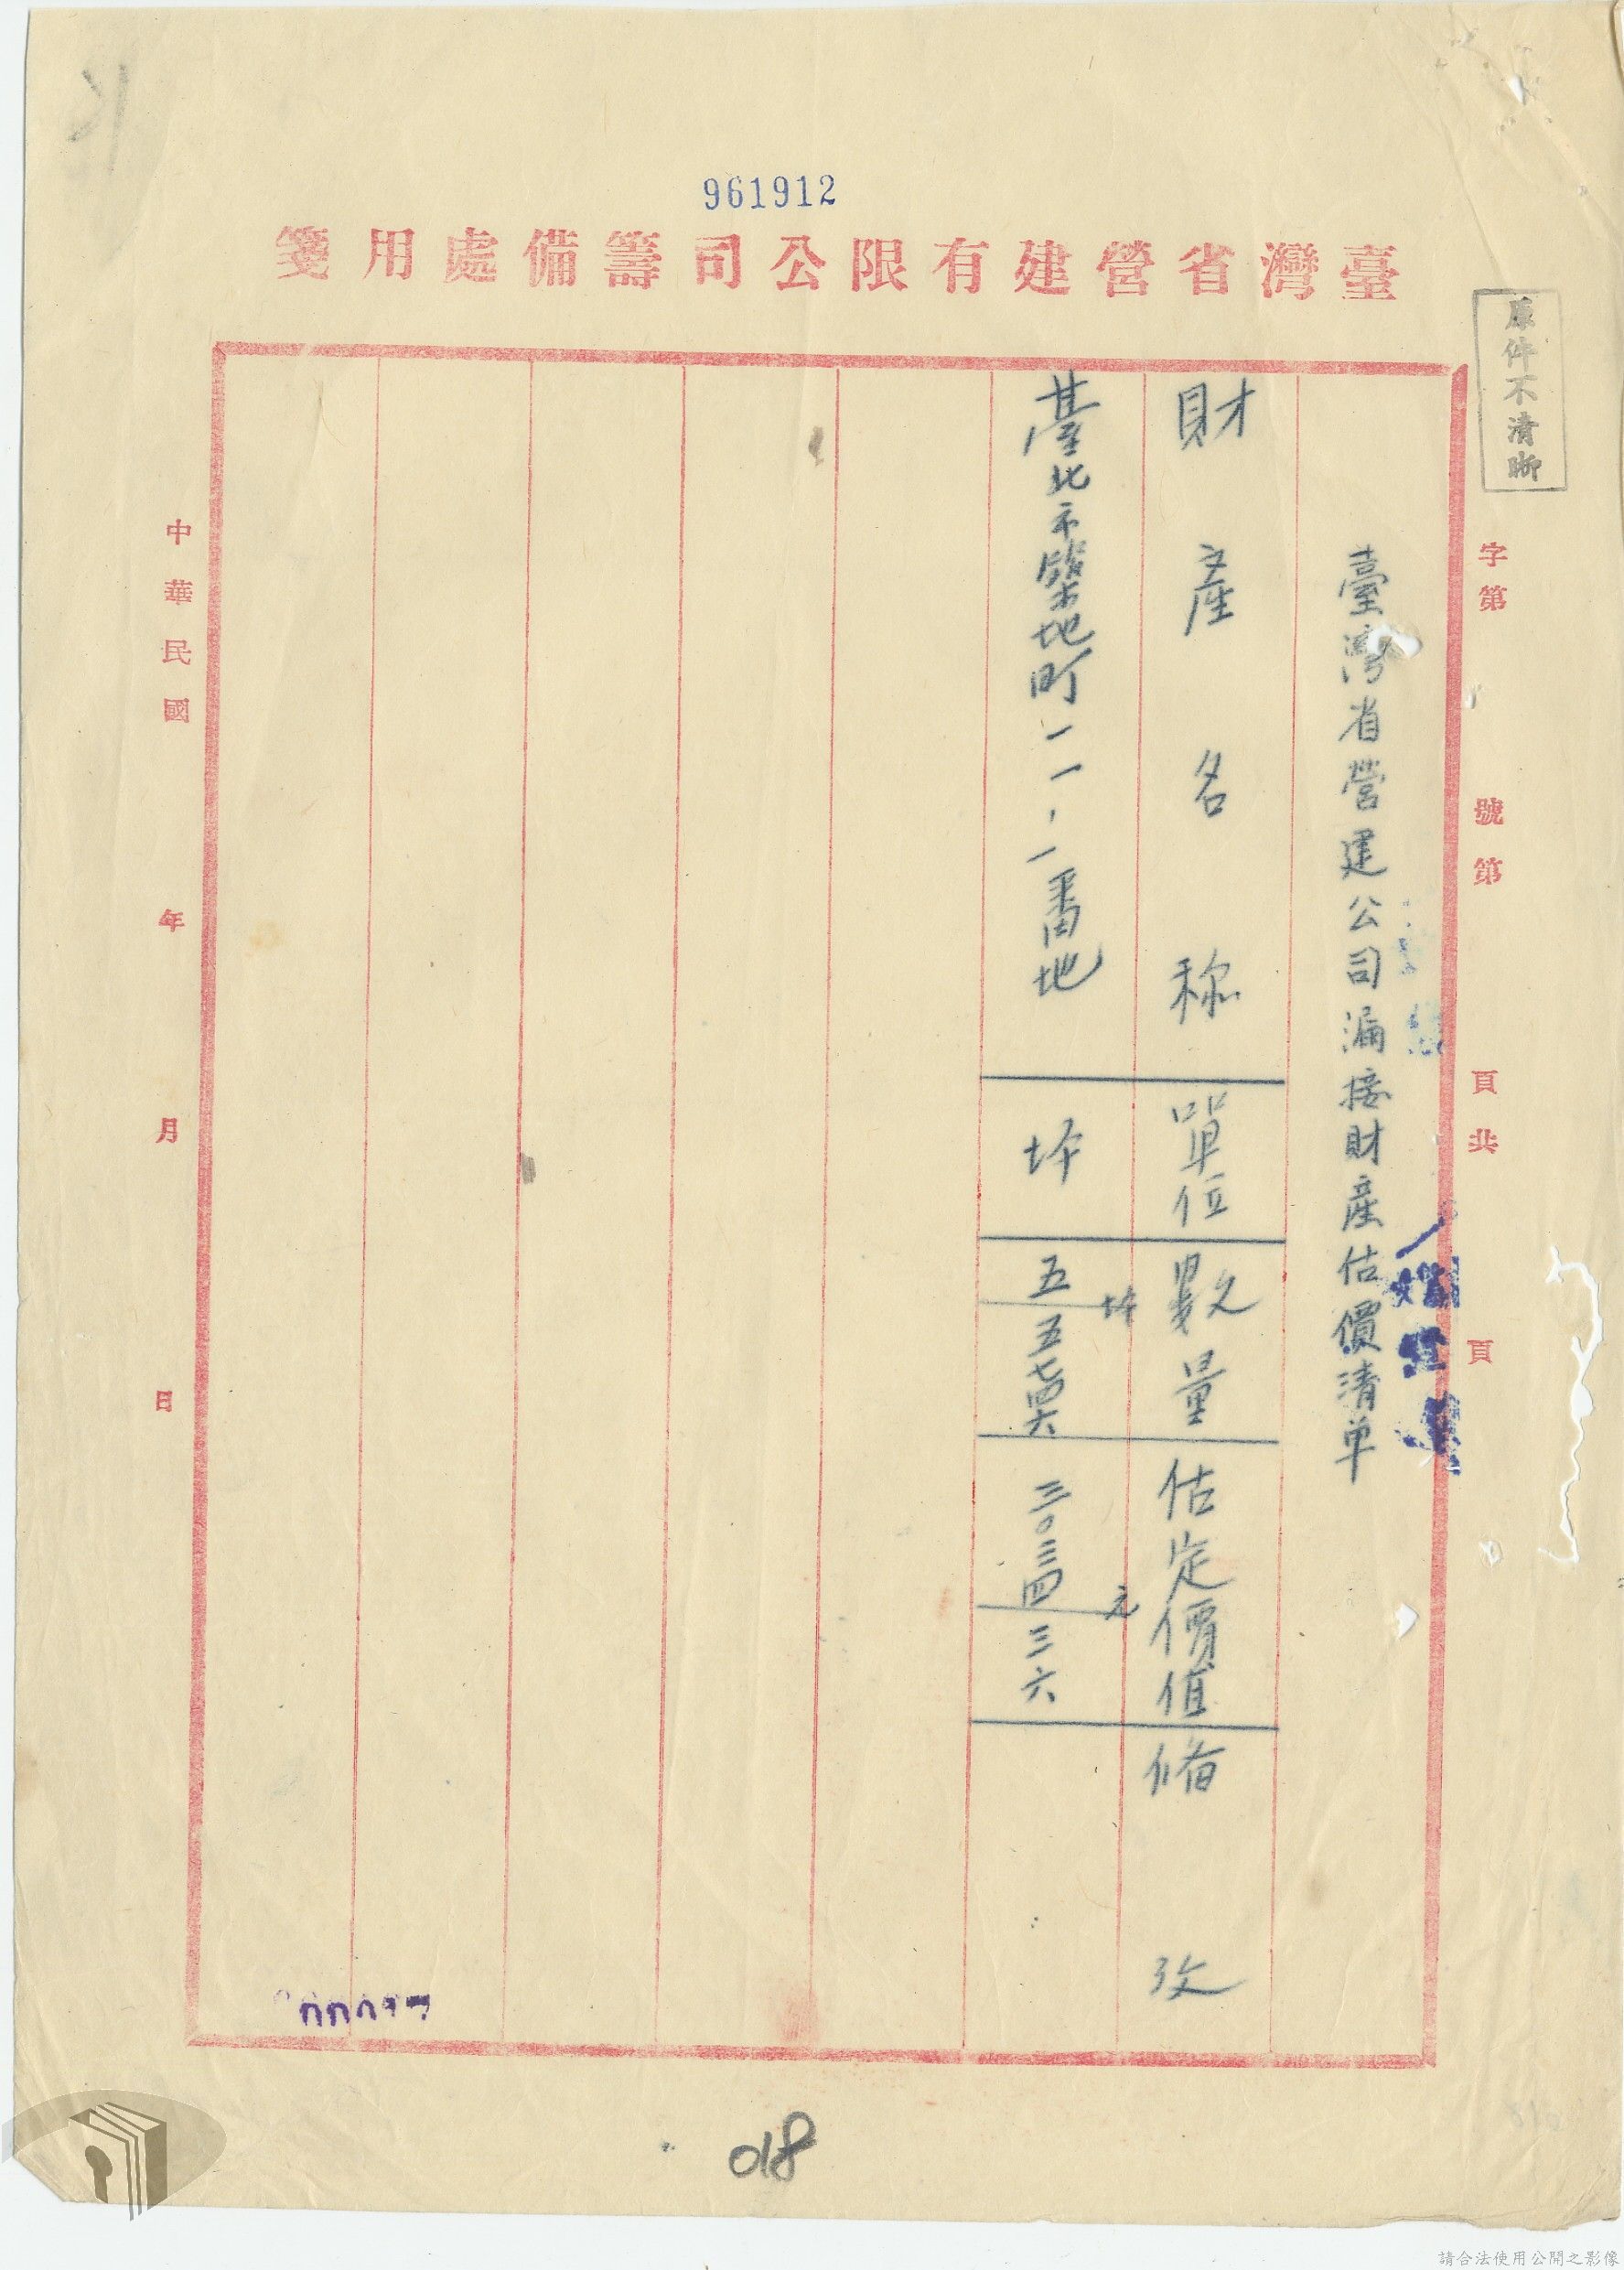 961912
臺灣省營建有限公司籌備處用箋
原件不清晰
字第　號第　頁共　頁
臺灣省營建公司漏接財產估價清单
財產名称　單位　數量　估定價值　俻攷
坪　元
臺北市築地町一一、一番地　坪　五　五七四六　三〇三四　三六
中華民國　年　月　日
018
請合法使用公開之影像